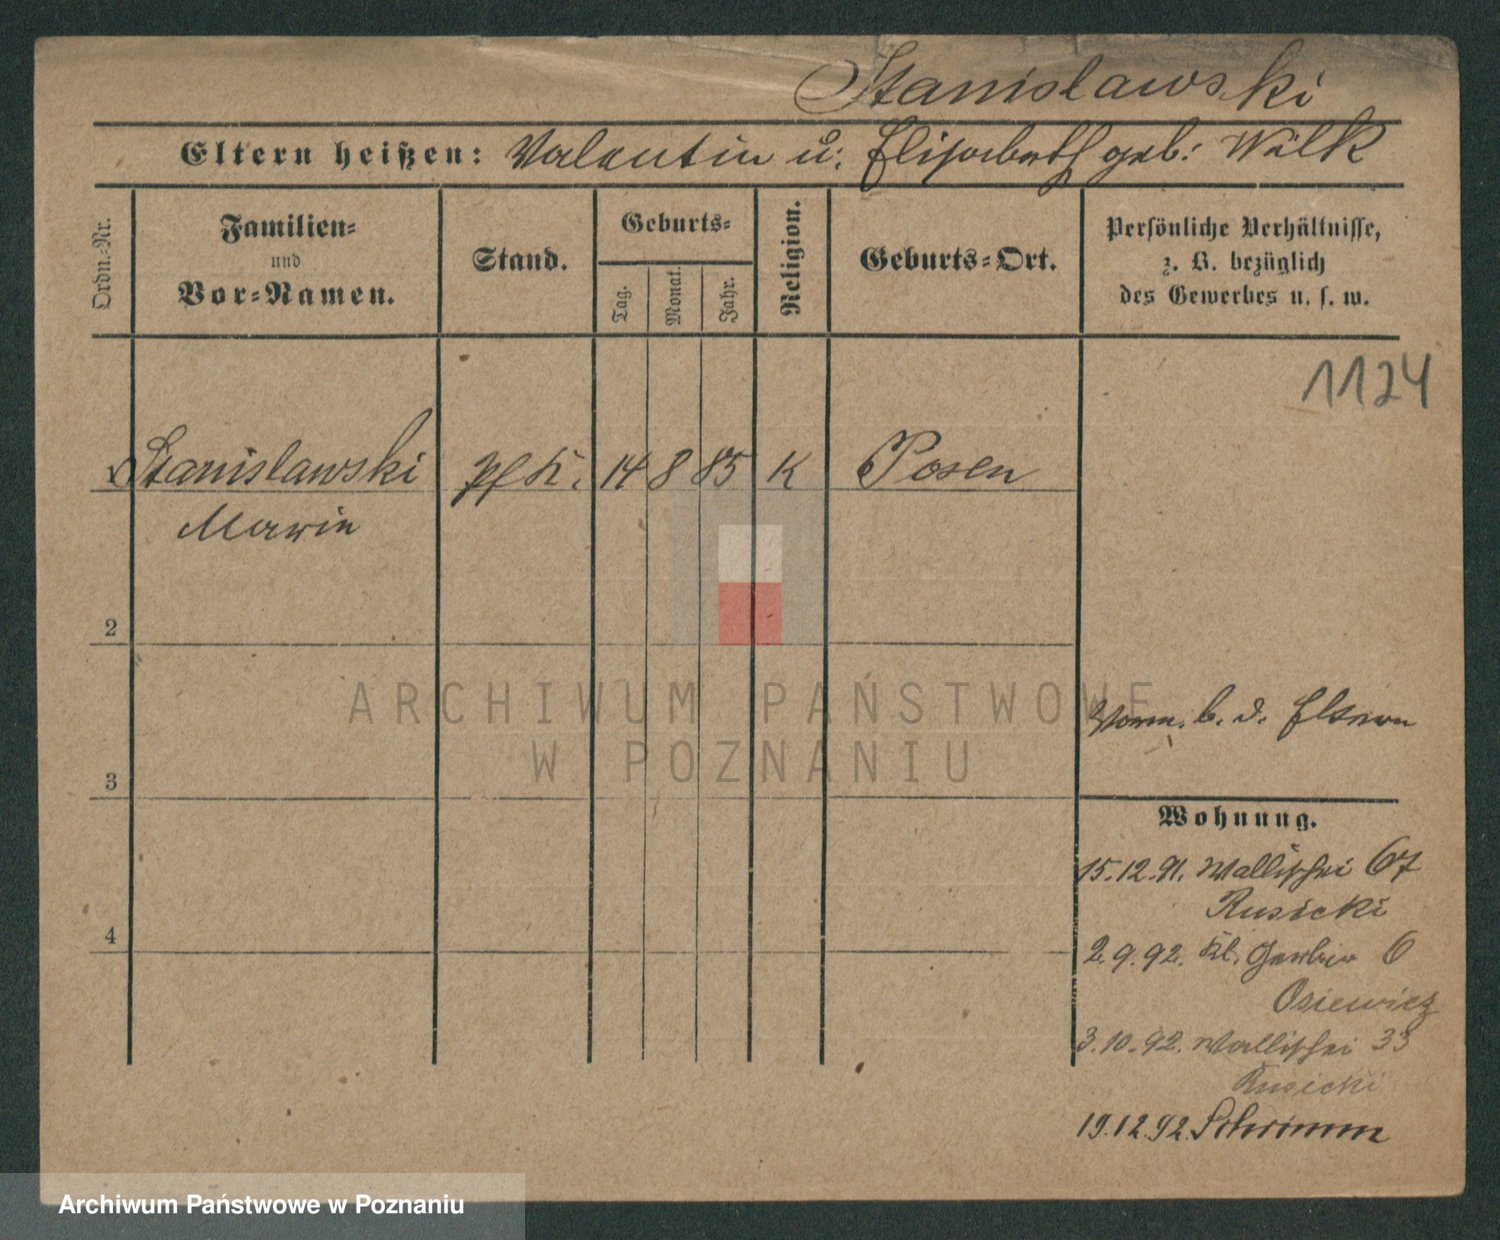 Stanislawski
Eltern heißen: Valentin u. Elisabeth geb: Wilk
Ordn.-Nr.
Familien-
und
Vor-Namen.
Stand.
Geburts-
Tag.
Monat.
Jahr.
Religion.
Geburts-Ort.
Persönliche Verhältnisse,
z. B. bezüglich
des Gewerbes u. s. w.
1124
1 Stanislawski Pfl K. 14 8 85 K Posen
Marie
2
ARCHIWUM PAŃSTWOWE
W POZNANIU
Vorm. b. d. Eltern
3
Wohnung.
15.12.91. Wallischei 67
Rusicki
4
2.9.92. Kl. Gerber 6
Osiewicz
3.10.92. Wallischei 33
Rusicki
19.12.92. Schrimm
Archiwum Państwowe w Poznaniu